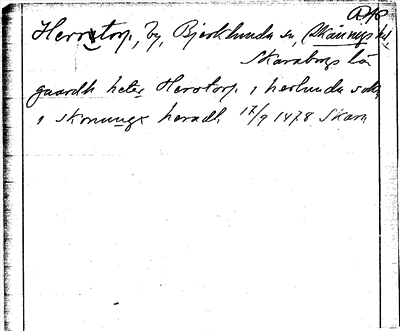 RAp
Herrstorp, by, Bjerklunda sn, Skånings hd,
Skaraborgs län
gaardh heter Herstorp i herlunda sokn
i skonungx heradh 17/9 1478 Skara